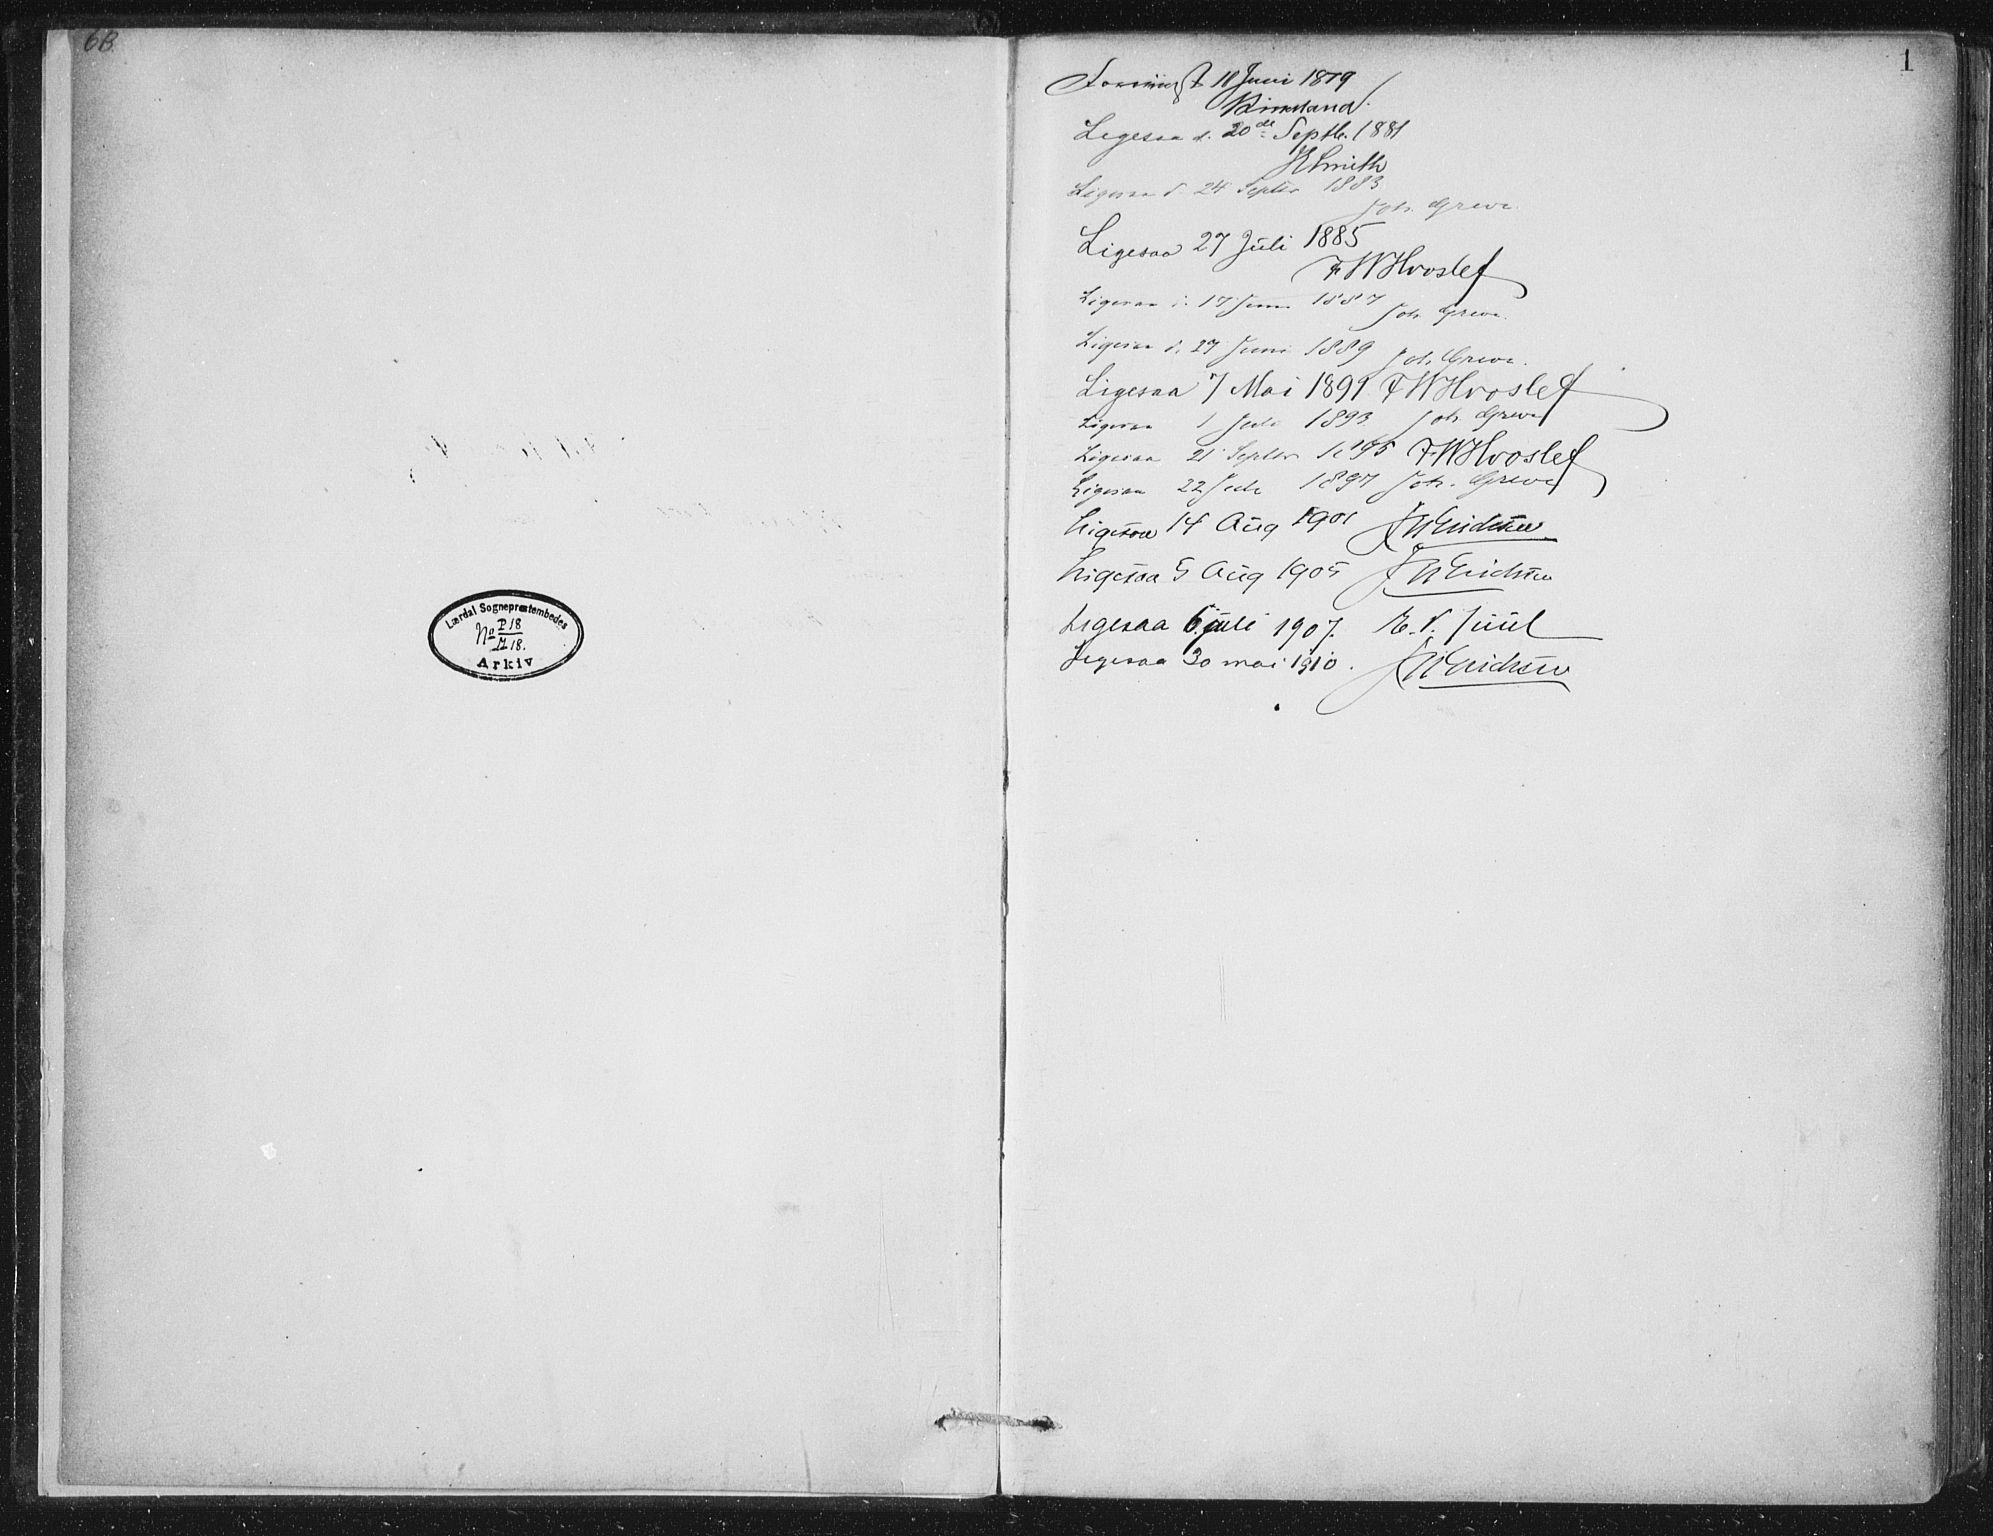 6B
Lærdal Sogneprestembedes
No P18
M 18.
Arkiv
1
11 Juni 1879
Ligesaa d. 20de Septb. 1881
Smith
Ligesaa d. 24 Septbr 1883
Joh. Greve.
Ligesaa 27 Juli 1885
F W Hvoslef
Ligesaa d. 17 Juni 1887 Joh. Greve.
Ligesaa d. 27 Juni 1889 Joh. Greve.
Ligesaa 7 Mai 1891 F W Hvoslef
Ligesaa 1 Juli 1893 Joh. Greve
Ligesaa 21 Septbr 1895 F W Hvoslef
Ligesaa 22 Juli 1897 Joh. Greve
Ligesaa 14 Aug 1901 J W Erichsen
Ligesaa 5 Aug 1905 J W Erichsen
Ligesaa 6 juli 1907. E. F. Juul
Ligesaa 30 mai 1910. J W Erichsen